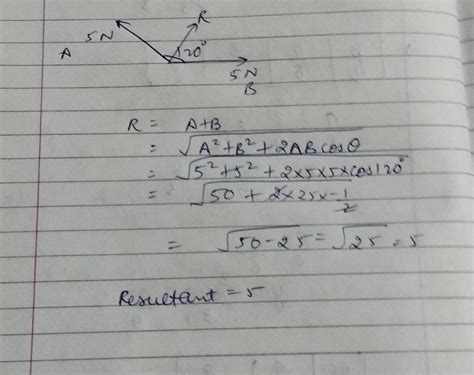 R
5N
A
120°
5N
B
R = A+B
= √A²+B²+2ABcosθ
= √5²+5²+2×5×5×cos120°
= √50+2×25×-1/2
= √50-25 = √25 = 5
Resultant = 5